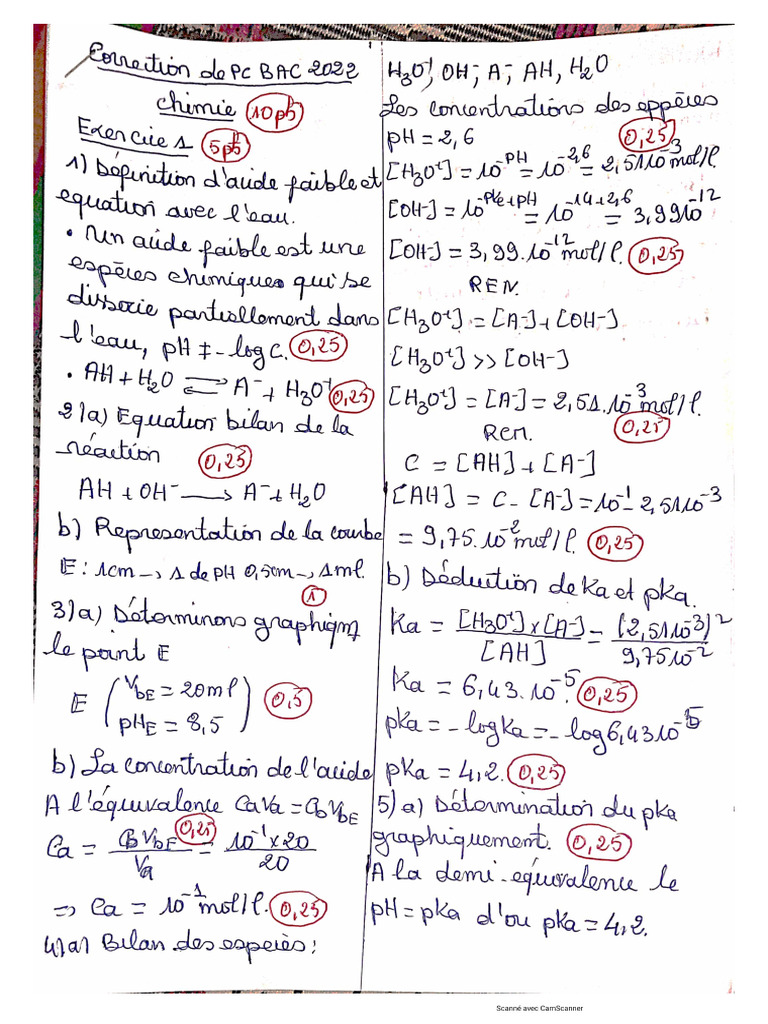 Correction de PC BAC 2022
Chimie 10pts
Exercice 1 5pts
1) Définition d'acide faible et
equation avec l'eau.
• Un acide faible est une
espèces chimiques qui se
dissocie partiellement dans
l'eau, pH ≠ -log C. 0,25
• AH + H₂O ⇌ A⁻ + H₃O⁺ 0,25
2)a) Equation bilan de la
réaction 0,25
AH + OH⁻ → A⁻ + H₂O
b) Representation de la courbe
E : 1cm → 1 de pH 0,5cm → 1ml.
1
3)a) Déterminons graphiqm
le point E
E ( VbE = 20ml
pHE = 8,5 ) 0,5
b) La concentration de l'acide
A l'équivalence CaVa = CbVbE
Ca = CbVbE/Va = 10⁻¹ × 20/20 0,25
⇒ Ca = 10⁻¹ mol/l. 0,25
4)a) Bilan des espèces :
H₃O⁺, OH⁻, A⁻, AH, H₂O
Les concentrations des eppèces
pH = 2,6 0,25
[H₃O⁺] = 10^-pH = 10^-2,6 = 2,51 10⁻³ mol/l.
[OH⁻] = 10^-pKe+pH = 10^-14+2,6 = 3,99 10⁻¹²
[OH⁻] = 3,99.10⁻¹² mol/l. 0,25
REN.
[H₃O⁺] = [A⁻] + [OH⁻]
[H₃O⁺] >> [OH⁻]
[H₃O⁺] = [A⁻] = 2,51.10⁻³ mol/l.
Rem. 0,25
C = [AH] + [A⁻]
[AH] = C - [A⁻] = 10⁻¹ - 2,51 10⁻³
= 9,75.10⁻² mol/l. 0,25
b) Déduction de Ka et pka.
Ka = [H₃O⁺] x [A⁻]/[AH] = (2,51 10⁻³)²/9,75 10⁻²
Ka = 6,43.10⁻⁵. 0,25
pKa = -log Ka = -log 6,43 10⁻⁵
pKa = 4,2. 0,25
5) a) Détermination du pka
graphiquement. 0,25
A la demi-équivalence le
pH = pKa d'ou pKa = 4,2.
Scanné avec CamScanner